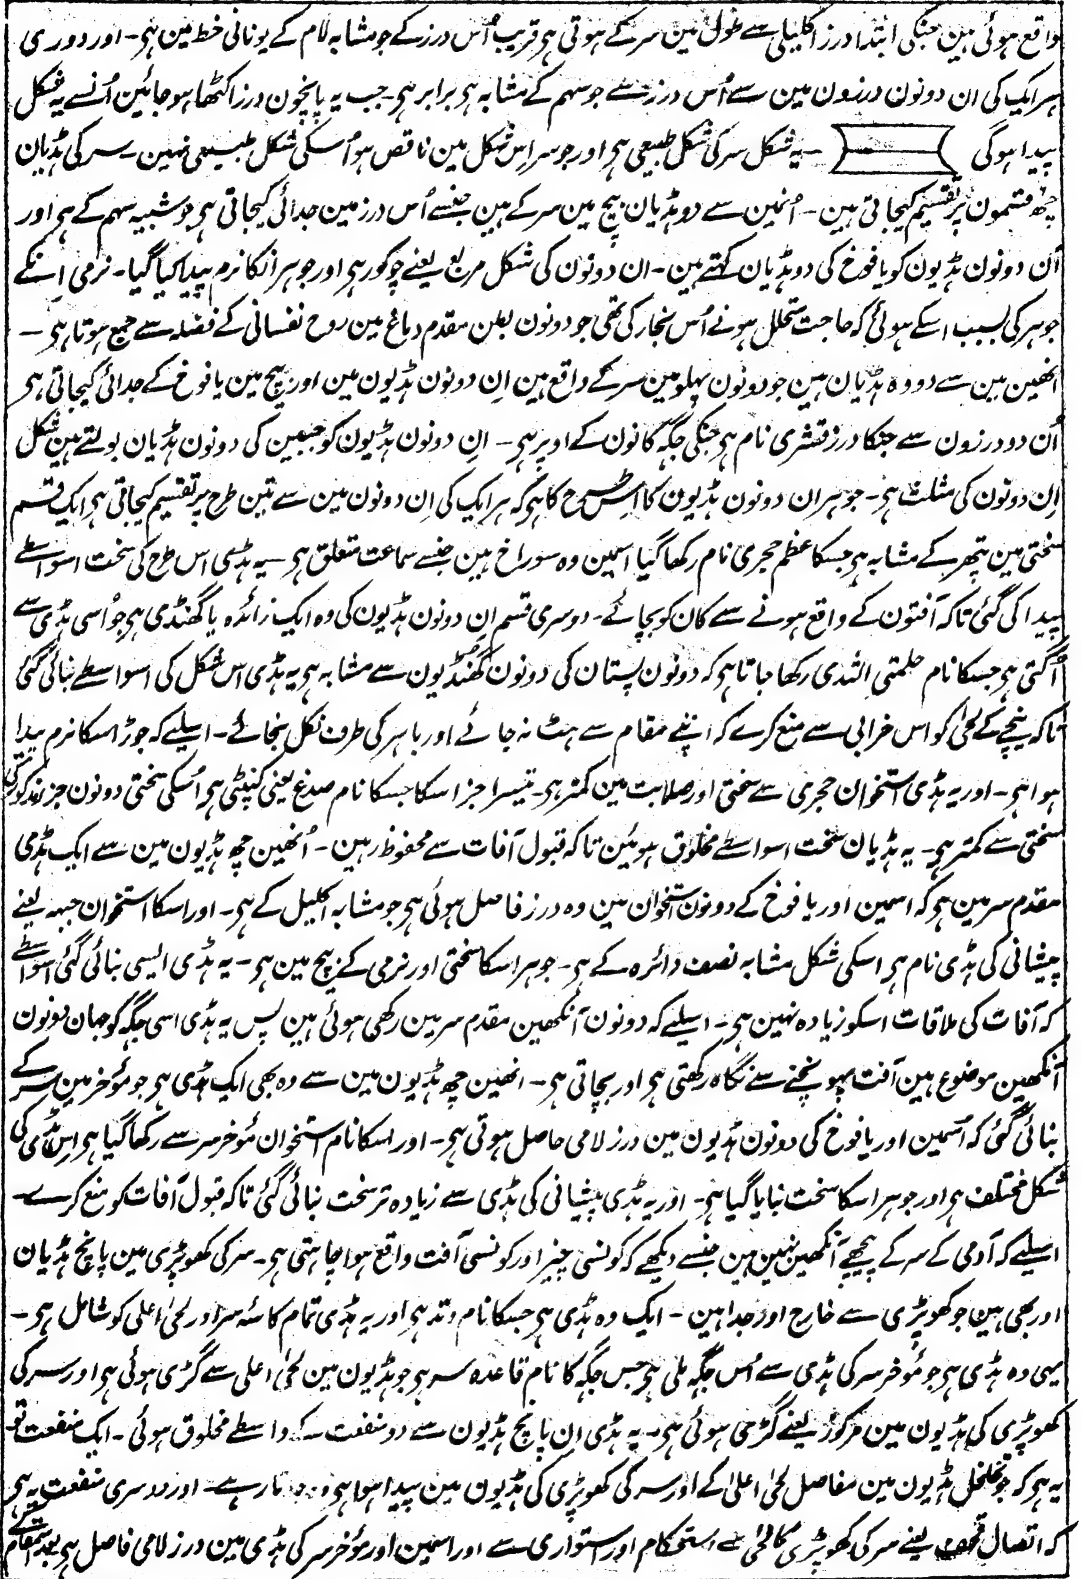 واقع ہوئی ہین جنکی ابتدا درز اکلیلی سے طول مین سر کے ہوتی ہی قریب اُس درز کے جو مشابہ لام کے یونانی خط مین ہی۔ اور دوری
ہر ایک کی ان دونون درزون مین سے اُس درز سے جو سہم کے مشابہ ہی برابر ہی۔ جب یہ پانچون درز اکٹھا ہو جائین اُنسے یہ شکل
پیدا ہوگی ۔ یہ شکل سر کی شکل طبیعی ہی اور جو سر اِس شکل مین ناقص ہو اُسکی شکل طبیعی نہین۔ سر کی ہڈیان
چھ قسمون پر تقسیم کیجاتی ہین۔ اُنمین سے دو ہڈیان بیچ مین سر کے ہین جنسے اُس درز مین جدائی کیجاتی ہی جو شبیہ سہم کے ہی اور
اُن دونون ہڈیون کو یافوخ کی دو ہڈیان کہتے ہین۔ ان دونون کی شکل مربع یعنے چوکور ہی اور جوہر انکا نرم پیدا کیا گیا۔ نرمی اِنکے
جوہر کی بسبب اسکے ہوئی کہ حاجت متحلل ہونے اُس بخار کی تھی جو دونون بطن مقدم دماغ مین روح نفسانی کے فضلہ سے جمع ہوتا ہی۔
انھین مین سے دو وہ ہڈیان ہین جو دونون پہلو مین سر کے واقع ہین اِن دونون ہڈیون مین اور بیچ مین یافوخ کے جدائی کیجاتی ہی
اُن دو درزون سے جنکا درز قشری نام ہی جنکی جگہ کانون کے اوپر ہی۔ اِن دونون ہڈیون کو جبین کی دونون ہڈیان بولتے ہین شکل
اِن دونون کی مثلث ہی۔ جوہر ان دونون ہڈیون کا اس طرح کا ہی کہ ہر ایک کی اِن دونون مین سے تین طرح پر تقسیم کیجاتی ہی ایک قسم
سختی مین پتھر کے مشابہ ہی جسکا عظم حجری نام رکھا گیا اسمین وہ سوراخ ہین جنسے سماعت متعلق ہی۔ یہ ہڈی اس طرح کی سخت اسواسطے
پیدا کی گئی تاکہ آفتون کے واقع ہونے سے کان کو بچائے۔ دوسری قسم اِن دونون ہڈیون کی وہ ایک زائدہ یا گھنڈی ہی جو اُسی ہڈی سے
اُگتی ہی جسکا نام حلمتی الثدی رکھا جاتا ہی کہ دونون پستان کی دونون گھنڈیون سے مشابہ ہی یہ ہڈی اس شکل کی اسواسطے بنائی گئی
تاکہ نیچے کے لحیٰ کو اس خرابی سے منع کرے کہ اپنے مقام سے ہٹ نہ جائے اور باہر کی طرف نکل نجائے۔ اسلیے کہ جوڑ اسکا نرم پیدا
ہوا ہی۔ اور یہ ہڈی استخوان حجری سے سختی اور صلابت مین کمتر ہی۔ تیسرا جز اسکا جسکا نام صدغ یعنی کنپٹی ہی اُسکی سختی دونون جز مذکور کی
سختی سے کمتر ہی۔ یہ ہڈیان سخت اسواسطے مخلوق ہوئین تاکہ قبول آفات سے محفوظ رہین۔ اُنھین چھ ہڈیون مین سے ایک ہڈی
مقدم سر مین ہی کہ اسمین اور یافوخ کے دونون استخوان مین وہ درز فاصل ہوئی ہی جو مشابہ اکلیل کے ہی۔ اور اسکا استخوان جبہہ یعنے
پیشانی کی ہڈی نام ہی اسکی شکل مشابہ نصف دائرہ کے ہی۔ جوہر اسکا سختی اور نرمی کے بیچ مین ہی۔ یہ ہڈی ایسی بنائی گئی اسواسطے
کہ آفات کی ملاقات اسکو زیادہ نہین ہی۔ اسلیے کہ دونون آنکھین مقدم سر مین رکھی ہوئی ہین پس یہ ہڈی اسی جگہ کو جہان دونون
آنکھین موضوع ہین آفت پہونچنے سے نگاہ رکھتی ہی اور بچاتی ہی۔ انھین چھ ہڈیون مین سے وہ بھی ایک ہڈی ہی جو مؤخر مین سر کے
بنائی گئی کہ اسمین اور یافوخ کی دونون ہڈیون مین درز لامی حاصل ہوتی ہی۔ اور اسکا نام استخوان مؤخر سر سے رکھا گیا ہی اِس ہڈی کی
شکل مختلف ہی اور جوہر اسکا سخت بنایا گیا ہی۔ اور یہ ہڈی پیشانی کی ہڈی سے زیادہ تر سخت بنائی گئی تاکہ قبول آفات کو منع کرے۔
اسلیے کہ آدمی کے سر کے پیچھے آنکھین نہین ہین جنسے دیکھے کہ کونسی چیز اور کونسی آفت واقع ہوا چاہتی ہی۔ سر کی کھوپڑی مین پانچ ہڈیان
اور بھی ہین جو کھوپڑی سے خارج اور جدا ہین۔ ایک وہ ہڈی ہی جسکا نام وتد ہی اور یہ ہڈی تمام کاسۂ سر اور لحیٰ اعلی کو شامل ہی۔
یہی وہ ہڈی ہی جو مؤخر سر کی ہڈی سے اُس جگہ ملی ہی جس جگہ کا نام قاعدہ سر ہی جو ہڈیون مین لحیٰ اعلی سے گڑی ہوئی ہی اور سر کی
کھوپڑی کی ہڈیون مین مرکوز یعنے گڑی ہوئی ہی۔ یہ ہڈی اِن پانچ ہڈیون سے دو منفعت کے واسطے مخلوق ہوئی۔ ایک منفعت تو
یہ ہی کہ جو تخلخل ہڈیون مین مفاصل لحیٰ اعلیٰ کے اور سر کی کھوپڑی کی ہڈیون مین پیدا ہوا ہی رہے۔ اور دوسری منفعت یہ ہی
کہ اتصال قحف یعنے سر کی کھوپڑی کا لحیٰ سے استحکام اور استواری سے اور اسمین اور مؤخر سر کی ہڈی مین درز لامی فاصل ہی